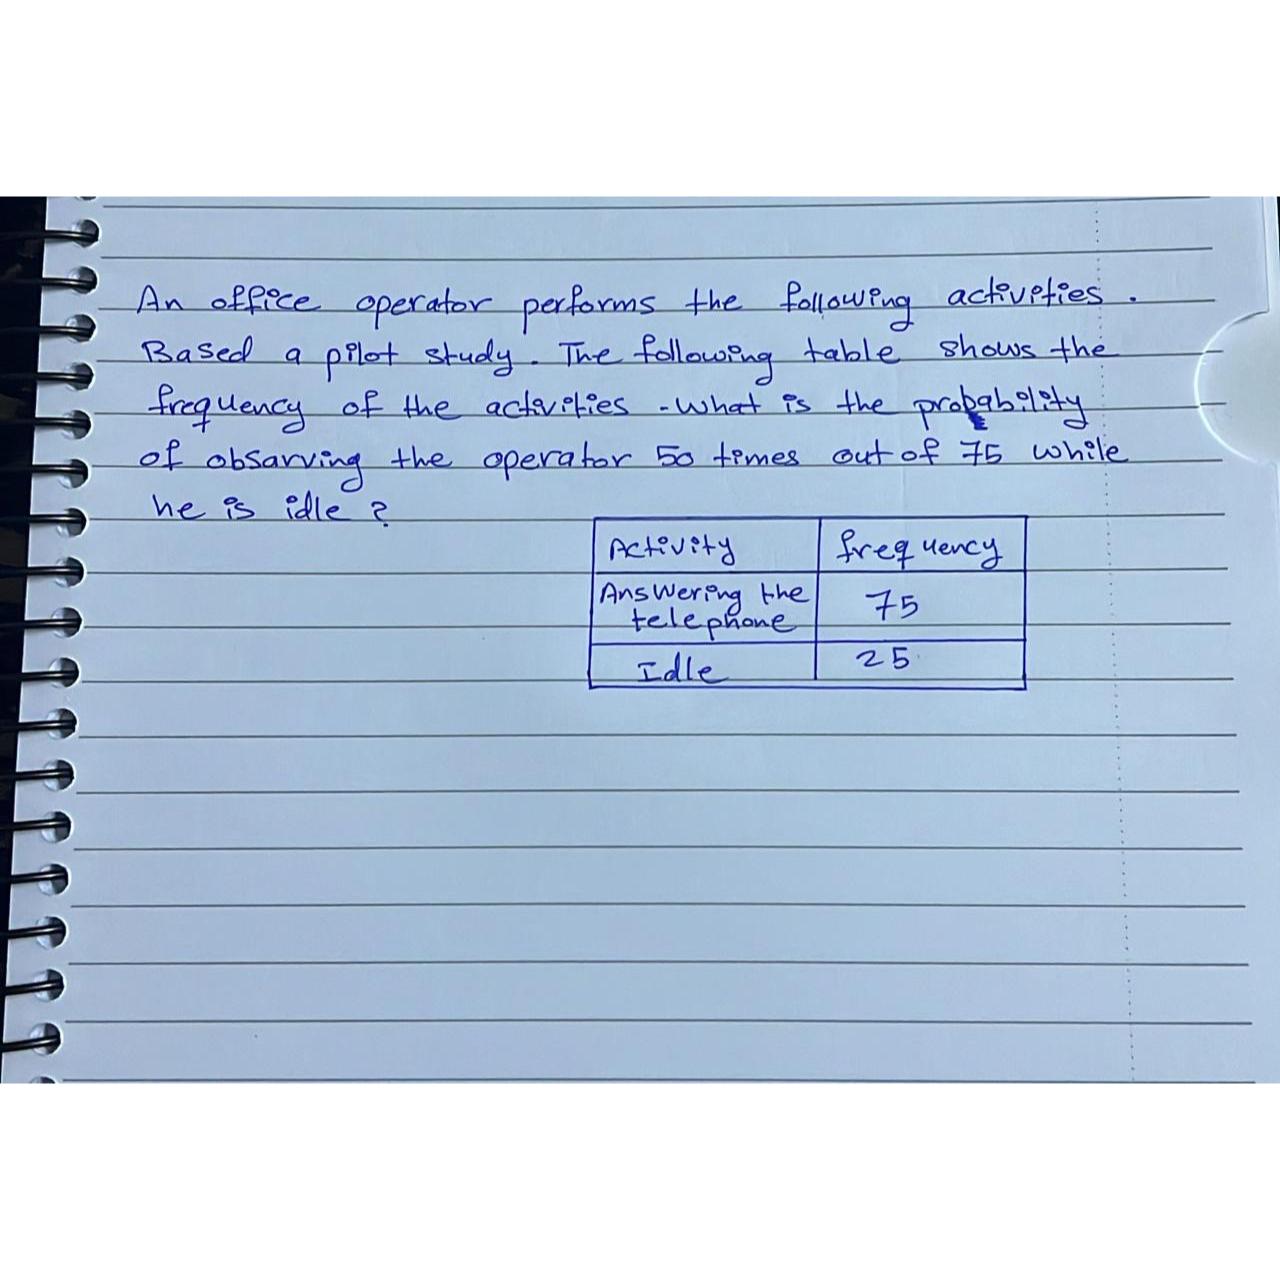 An office operator performs the following activities.
Based a pilot study. The following table shows the
frequency of the activities - What is the probability
of obsarving the operator 50 times out of 75 while
he is idle ?
Activity frequency
Answering the
telephone 75
Idle 25